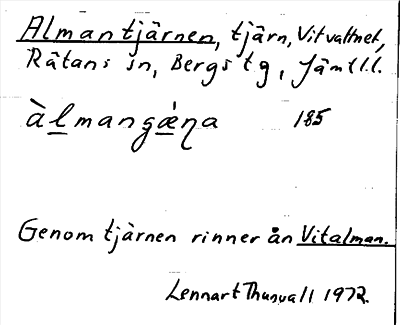 Almantjärnen, tjärn, Vitvattnet,
Rätans sn, Bergs tg, Jämtl.l.
àlmangǽna 185
Genom tjärnen rinner ån Vitalman.
Lennart Thunvall 1972.